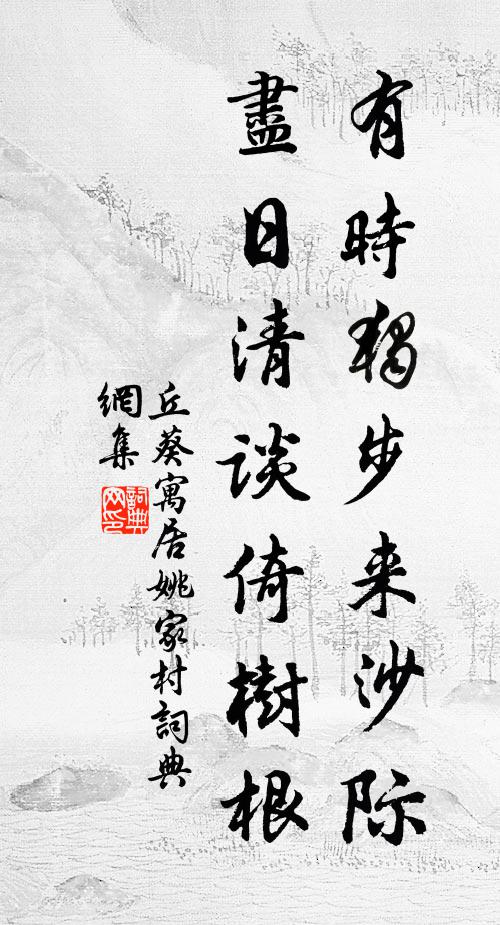 有時獨步来沙际
盡日清談倚樹根
丘葵寓居姚家村詞典
網集
詞典
网印